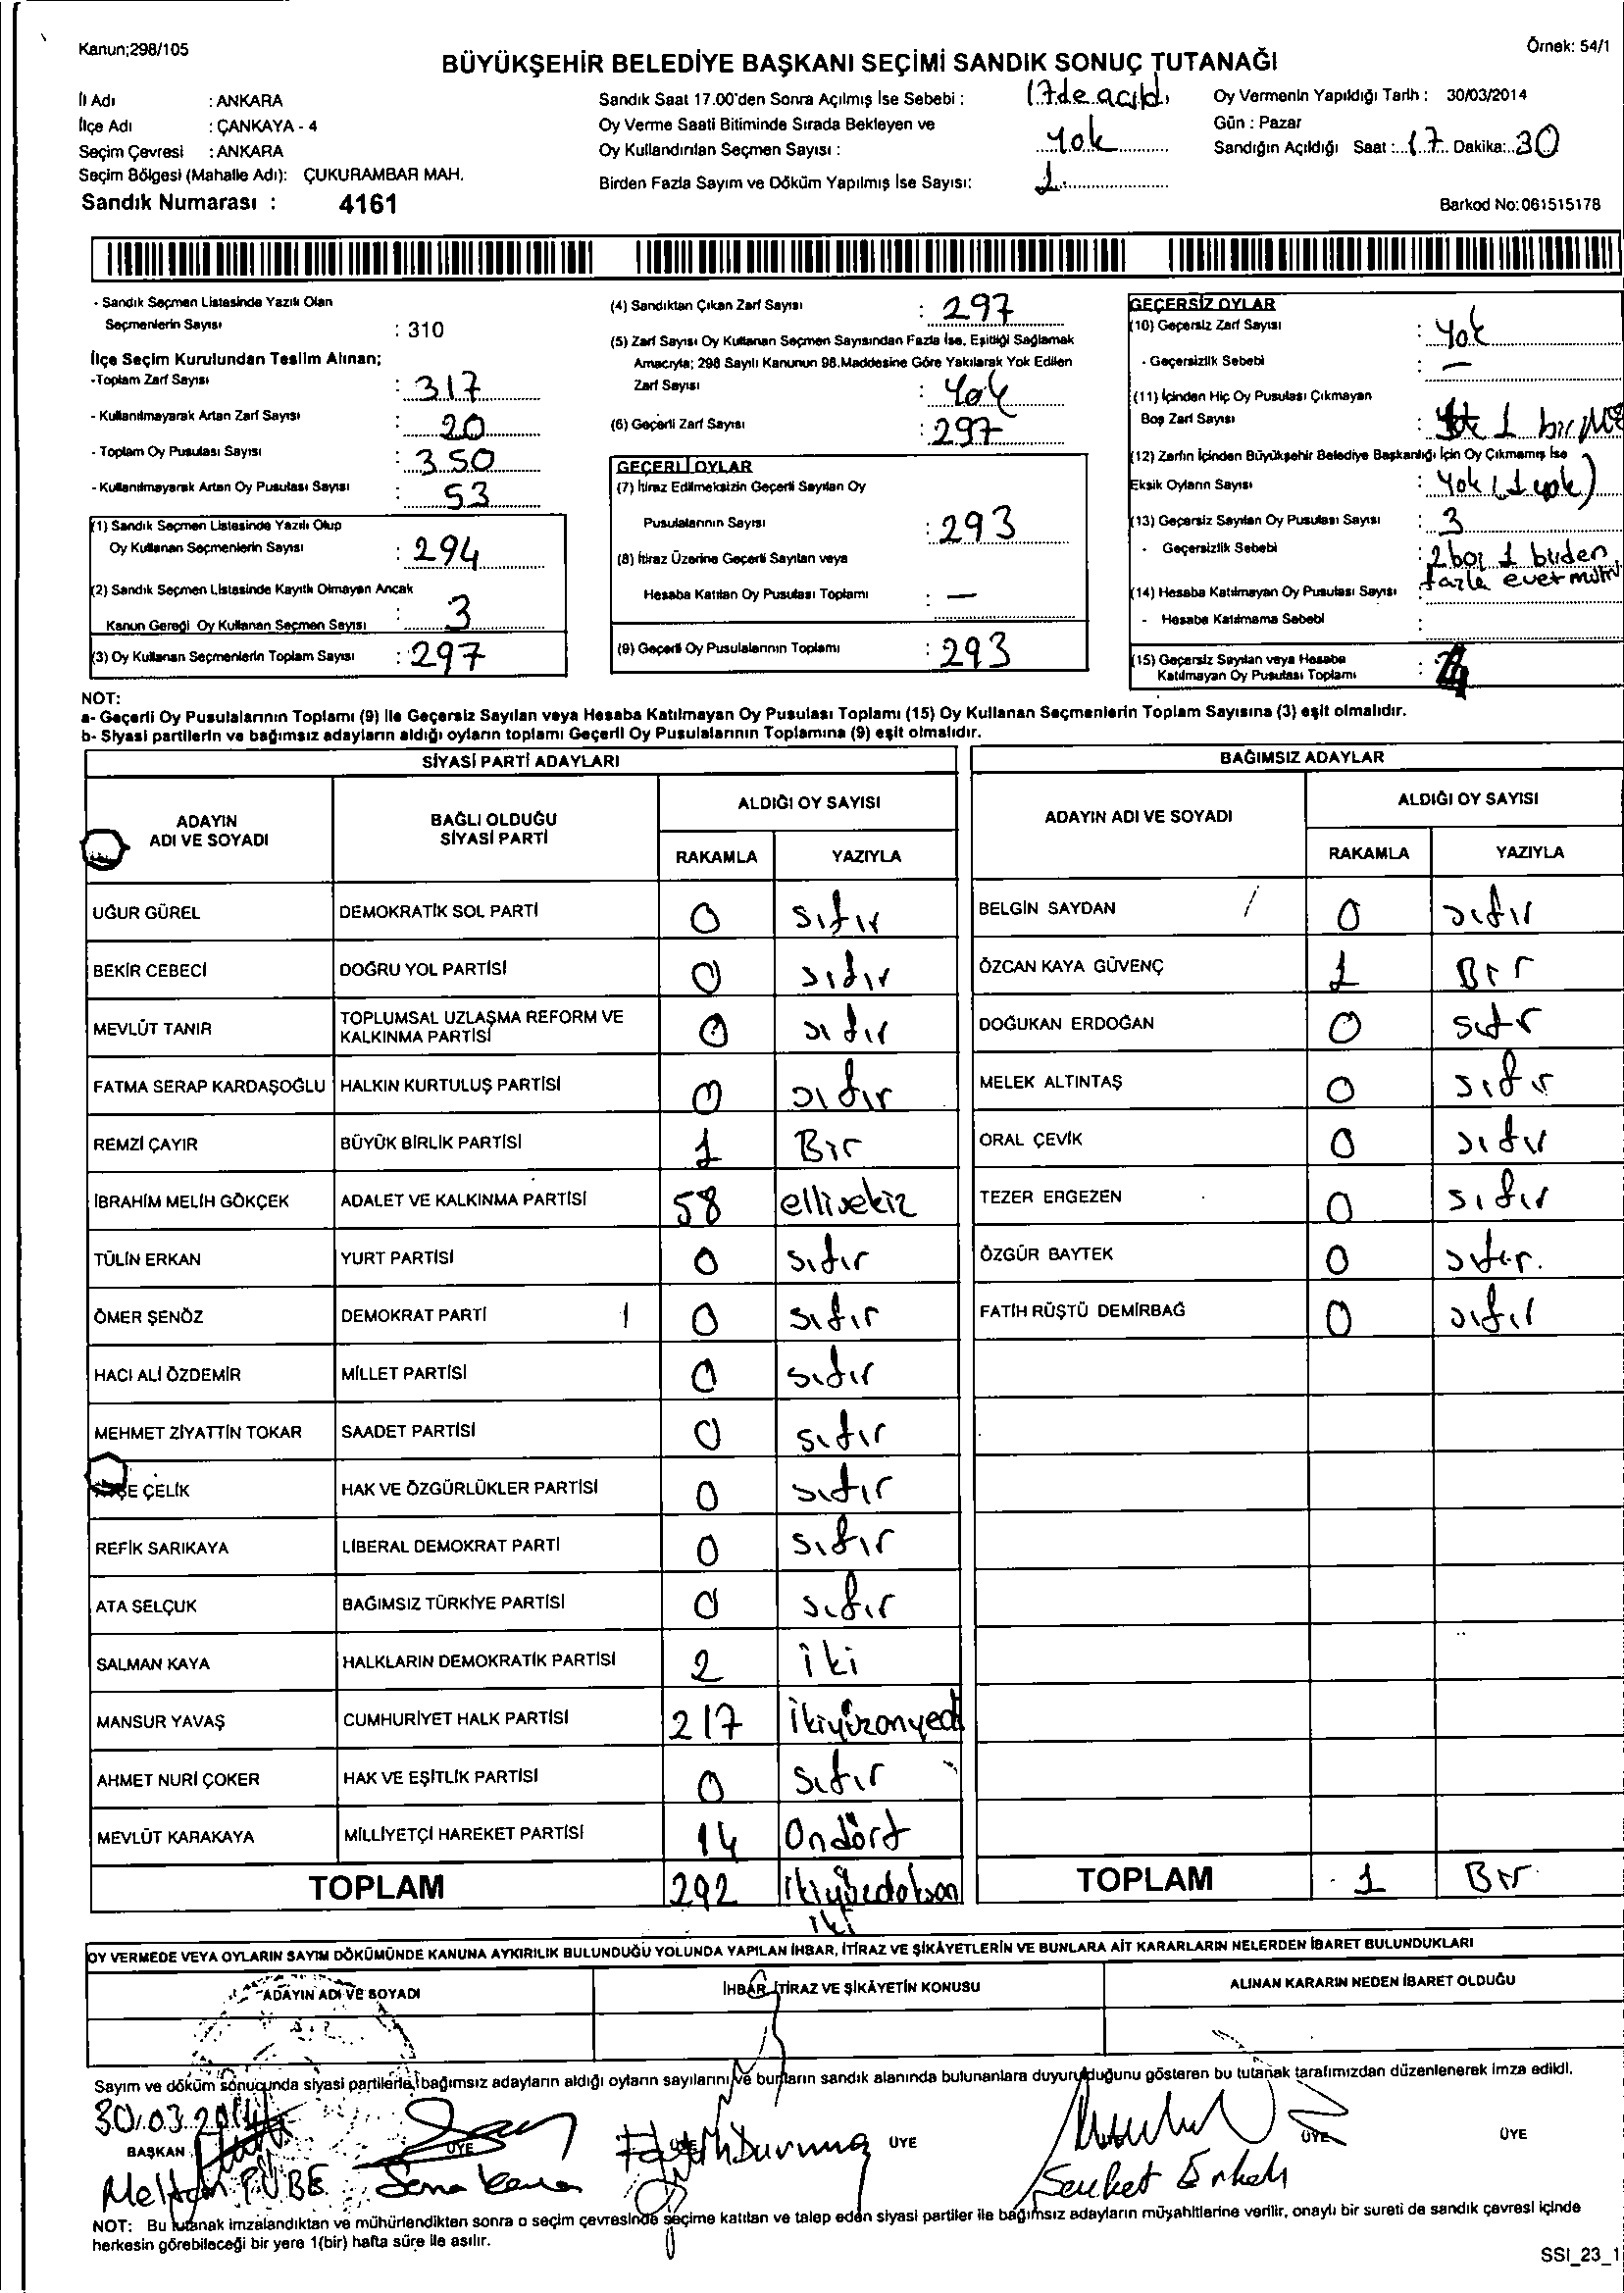 Kanun;298/105
Örnek: 54/1
BÜYÜKŞEHİR BELEDİYE BAŞKANI SEÇİMİ SANDIK SONUÇ TUTANAĞI
İl Adı : ANKARA
İlçe Adı : ÇANKAYA - 4
Seçim Çevresi : ANKARA
Seçim Bölgesi (Mahalle Adı): ÇUKURAMBAR MAH.
Sandık Numarası : 4161
Sandık Saat 17.00'den Sonra Açılmış İse Sebebi : 17de açıldı
Oy Verme Saati Bitiminde Sırada Bekleyen ve
Oy Kullandırılan Seçmen Sayısı : Yok
Birden Fazla Sayım ve Döküm Yapılmış İse Sayısı: 1
Oy Vermenin Yapıldığı Tarih : 30/03/2014
Gün : Pazar
Sandığın Açıldığı Saat : 17 Dakika: 30
Barkod No: 061515178
- Sandık Seçmen Listesinde Yazılı Olan
Seçmenlerin Sayısı : 310
İlçe Seçim Kurulundan Teslim Alınan;
-Toplam Zarf Sayısı : 317
- Kullanılmayarak Artan Zarf Sayısı : 20
- Toplam Oy Pusulası Sayısı : 350
- Kullanılmayarak Artan Oy Pusulası Sayısı : 53
(1) Sandık Seçmen Listesinde Yazılı Olup
Oy Kullanan Seçmenlerin Sayısı : 294
(2) Sandık Seçmen Listesinde Kayıtlı Olmayan Ancak
Kanun Gereği Oy Kullanan Seçmen Sayısı : 3
(3) Oy Kullanan Seçmenlerin Toplam Sayısı : 297
(4) Sandıktan Çıkan Zarf Sayısı : 297
(5) Zarf Sayısı Oy Kullanan Seçmen Sayısından Fazla İse, Eşitliği Sağlamak
Amacıyla; 298 Sayılı Kanunun 98.Maddesine Göre Yakılarak Yok Edilen
Zarf Sayısı : Yok
(6) Geçerli Zarf Sayısı : 297
GEÇERLİ OYLAR
(7) İtiraz Edilmeksizin Geçerli Sayılan Oy
Pusulalarının Sayısı : 293
(8) İtiraz Üzerine Geçerli Sayılan veya
Hesaba Katılan Oy Pusulası Toplamı : —
(9) Geçerli Oy Pusulalarının Toplamı : 293
GEÇERSİZ OYLAR
(10) Geçersiz Zarf Sayısı : Yok
- Geçersizlik Sebebi : —
(11) İçinden Hiç Oy Pusulası Çıkmayan
Boş Zarf Sayısı : 1 bir
(12) Zarfın İçinden Büyükşehir Belediye Başkanlığı İçin Oy Çıkmamış İse
Eksik Oyların Sayısı : Yok (1 yok)
(13) Geçersiz Sayılan Oy Pusulası Sayısı : 3
- Geçersizlik Sebebi : 2 boş 1 birden
fazla evet
(14) Hesaba Katılmayan Oy Pusulası Sayısı
- Hesaba Katılmama Sebebi :
(15) Geçersiz Sayılan veya Hesaba
Katılmayan Oy Pusulası Toplamı : 4
NOT:
a- Geçerli Oy Pusulalarının Toplamı (9) İle Geçersiz Sayılan veya Hesaba Katılmayan Oy Pusulası Toplamı (15) Oy Kullanan Seçmenlerin Toplam Sayısına (3) eşit olmalıdır.
b- Siyasi partilerin ve bağımsız adayların aldığı oyların toplamı Geçerli Oy Pusulalarının Toplamına (9) eşit olmalıdır.
SİYASİ PARTİ ADAYLARI
ADAYIN ADI VE SOYADI BAĞLI OLDUĞU SİYASİ PARTİ ALDIĞI OY SAYISI
RAKAMLA YAZIYLA
UĞUR GÜREL DEMOKRATİK SOL PARTİ 0 sıfır
BEKİR CEBECİ DOĞRU YOL PARTİSİ 0 sıfır
MEVLÜT TANIR TOPLUMSAL UZLAŞMA REFORM VE KALKINMA PARTİSİ 0 sıfır
FATMA SERAP KARDAŞOĞLU HALKIN KURTULUŞ PARTİSİ 0 sıfır
REMZİ ÇAYIR BÜYÜK BİRLİK PARTİSİ 1 Bir
İBRAHİM MELİH GÖKÇEK ADALET VE KALKINMA PARTİSİ 58 ellisekiz
TÜLİN ERKAN YURT PARTİSİ 0 sıfır
ÖMER ŞENÖZ DEMOKRAT PARTİ 0 sıfır
HACI ALİ ÖZDEMİR MİLLET PARTİSİ 0 sıfır
MEHMET ZİYATTİN TOKAR SAADET PARTİSİ 0 sıfır
ÇELİK HAK VE ÖZGÜRLÜKLER PARTİSİ 0 sıfır
REFİK SARIKAYA LİBERAL DEMOKRAT PARTİ 0 sıfır
ATA SELÇUK BAĞIMSIZ TÜRKİYE PARTİSİ 0 sıfır
SALMAN KAYA HALKLARIN DEMOKRATİK PARTİSİ 2 iki
MANSUR YAVAŞ CUMHURİYET HALK PARTİSİ 217 ikiyüzonyedi
AHMET NURİ ÇOKER HAK VE EŞİTLİK PARTİSİ 0 sıfır
MEVLÜT KARAKAYA MİLLİYETÇİ HAREKET PARTİSİ 14 Ondört
TOPLAM 292 ikiyüzdoksan
iki
BAĞIMSIZ ADAYLAR
ADAYIN ADI VE SOYADI ALDIĞI OY SAYISI
RAKAMLA YAZIYLA
BELGİN SAYDAN 0 sıfır
ÖZCAN KAYA GÜVENÇ 1 Bir
DOĞUKAN ERDOĞAN 0 sıfır
MELEK ALTINTAŞ 0 sıfır
ORAL ÇEVİK 0 sıfır
TEZER ERGEZEN 0 sıfır
ÖZGÜR BAYTEK 0 sıfır
FATİH RÜŞTÜ DEMİRBAĞ 0 sıfır
TOPLAM 1 Bir
OY VERMEDE VEYA OYLARIN SAYIM DÖKÜMÜNDE KANUNA AYKIRILIK BULUNDUĞU YOLUNDA YAPILAN İHBAR, İTİRAZ VE ŞİKÂYETLERİN VE BUNLARA AİT KARARLARIN NELERDEN İBARET BULUNDUKLARI
ADAYIN ADI VE SOYADI İHBAR, İTİRAZ VE ŞİKÂYETİN KONUSU ALINAN KARARIN NEDEN İBARET OLDUĞU
Sayım ve döküm sonucunda siyasi partilerle, bağımsız adayların aldığı oyların sayılarını ve bunların sandık alanında bulunanlara duyurulduğunu gösteren bu tutanak tarafımızdan düzenlenerek imza edildi.
30.03.2014
BAŞKAN ÜYE ÜYE ÜYE ÜYE
NOT: Bu tutanak imzalandıktan ve mühürlendikten sonra o seçim çevresinde seçime katılan ve talep eden siyasi partiler ile bağımsız adayların müşahitlerine verilir, onaylı bir sureti de sandık çevresi içinde
herkesin görebileceği bir yere 1(bir) hafta süre ile asılır.
SSI_23_1